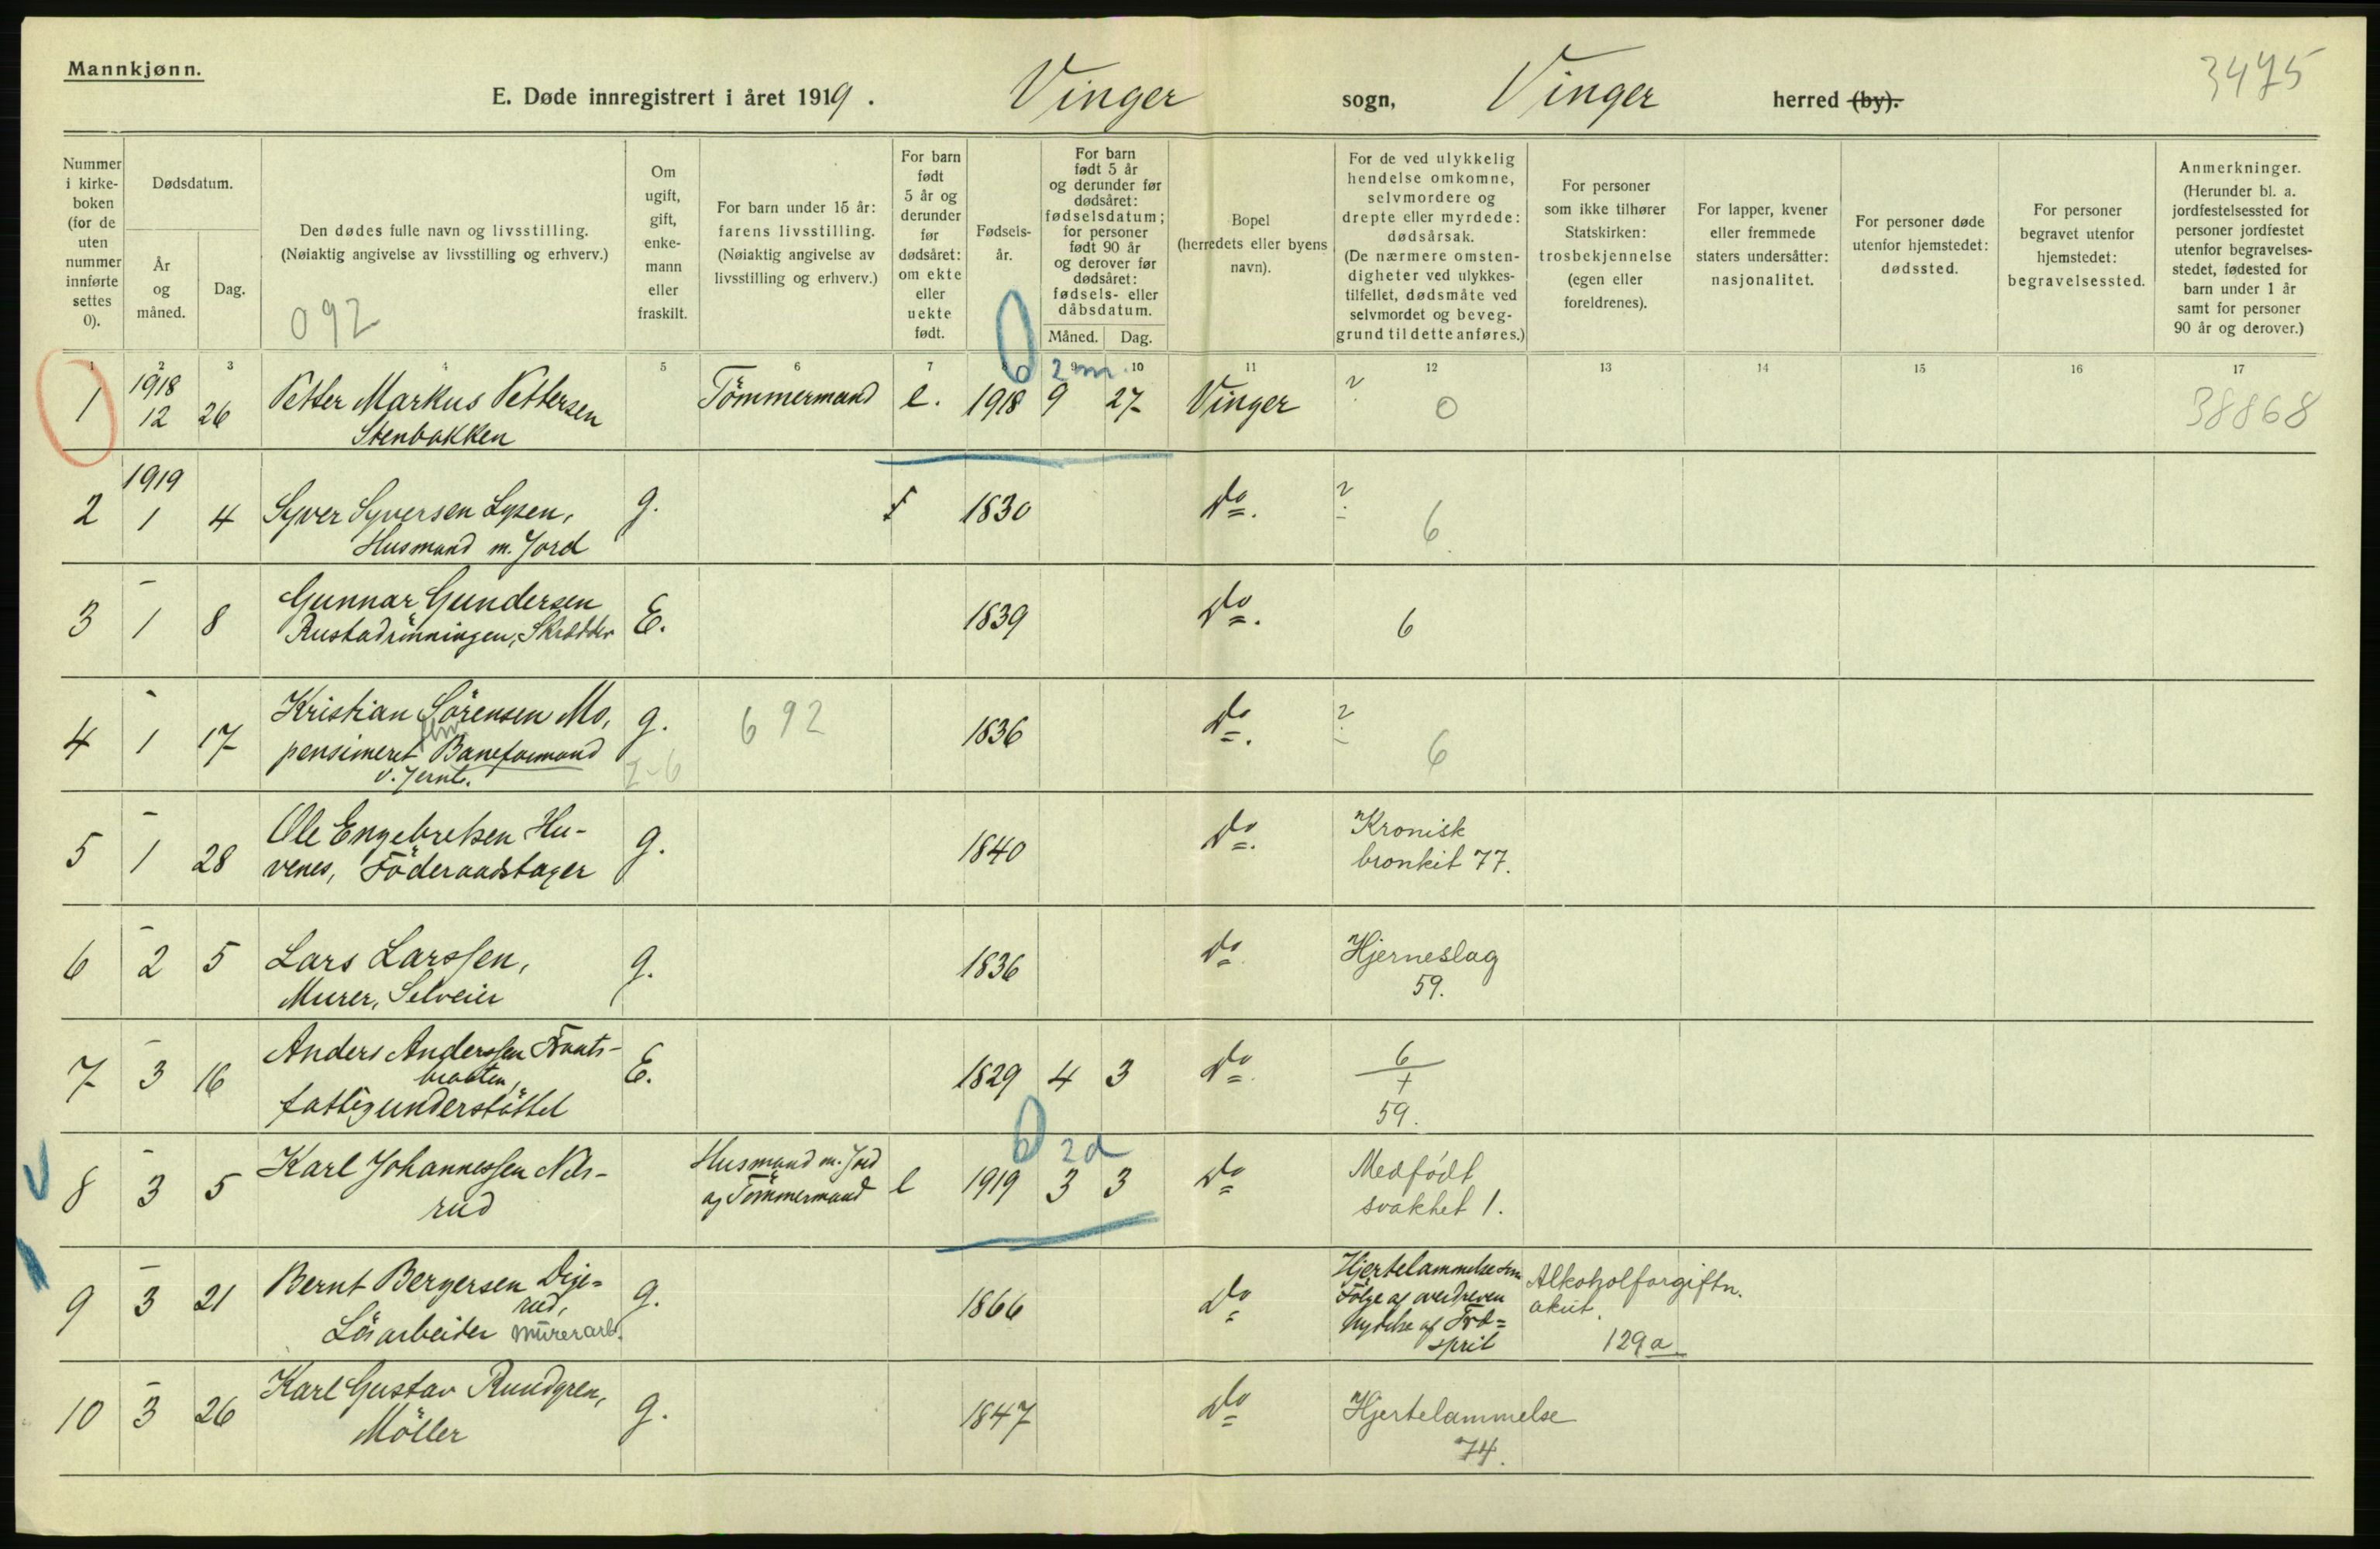 Mannkjønn.
3475
E. Døde innregistrert i året 1919. Vinger sogn, Vinger herred (by).
Nummer i kirke-boken (for de uten nummer innførte settes 0).
Dødsdatum.
År og måned.
Dag.
Den dødes fulle navn og livsstilling.
(Nøiaktig angivelse av livsstilling og erhverv.)
092
Om ugift, gift, enke-mann eller fraskilt.
For barn under 15 år: farens livsstilling.
(Nøiaktig angivelse av livsstilling og erhverv.)
For barn født 5 år og derunder før dødsåret: om ekte eller uekte født.
Fødsels-år.
For barn født 5 år og derunder før dødsåret: fødselsdatum; for personer født 90 år og derover før dødsåret: fødsels- eller dåbsdatum.
Måned. Dag.
Bopel (herredets eller byens navn).
For de ved ulykkelig hendelse omkomne, selvmordere og drepte eller myrdede: dødsårsak.
(De nærmere omsten-digheter ved ulykkes-tilfellet, dødsmåte ved selvmordet og beveg-grund til dette anføres.)
For personer som ikke tilhører Statskirken: trosbekjennelse (egen eller foreldrenes).
For lapper, kvener eller fremmede staters undersåtter: nasjonalitet.
For personer døde utenfor hjemstedet: dødssted.
For personer begravet utenfor hjemstedet: begravelsessted.
Anmerkninger.
(Herunder bl. a. jordfestelsessted for personer jordfestet utenfor begravelses-stedet, fødested for barn under 1 år samt for personer 90 år og derover.)
1 2 3 4 5 6 7 8 9 10 11 12 13 14 15 16 17
2 m.
1 1918 12 26 Petter Markus Pettersen Tömmermand e. 1918 9 27 Vinger ? 0 38868
Stenbakken
2 1919 1 4 Syver Syversen Lysen, g. 1830 Do. ? 6
Husmand m. Jord
3 - 1 8 Gunnar Gundersen E. 1839 Do. 6
Rustadrönningen, Skrædder
4 - 1 17 Kristian Sörensen Mo, g. 692 1836 Do. ? 6
pensioneret Baneformand
v. Jernb.
5 - 1 28 Ole Engebretsen Hu- g. 1840 Do. Kronisk
venes, Föderaadstager bronkit 77.
6 - 2 5 Lars Larssen, g. 1836 Do. Hjerneslag
Murer, Selveier 59.
7 - 3 16 Anders Anderssen Traats- E. 1829 4 3 Do. 6
braaten, +
fattigunderstöttet 59.
2 d
8 - 3 5 Karl Johannessen Nils- Husmand m. Jord e 1919 3 3 Do Medfödt
rud og Tömmermand svakhet 1.
9 - 3 21 Bernt Bergersen Dije= g. 1866 Do Hjertelammelse som Alkoholforgiftn.
rud, Følge af overdreven akut.
Lösarbeider murerarb. Nydelse af Træ= 129a
sprit
10 - 3 26 Karl Gustav Rundgren, g. 1847 Do Hjertelammelse
Möller 74.